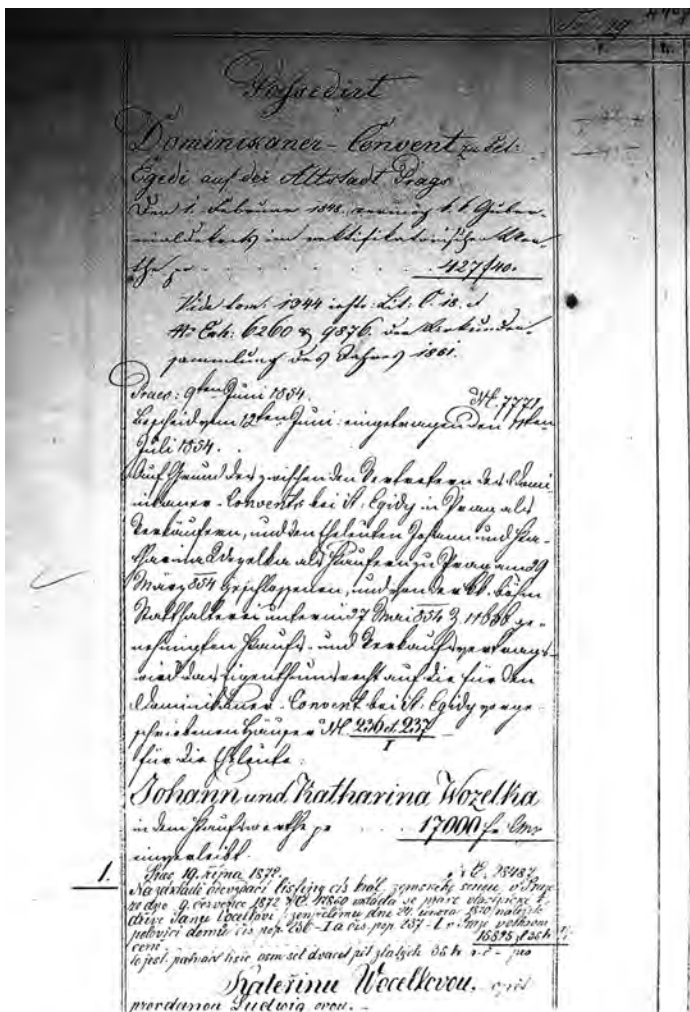 Fol. 29
Possedirt
Dominikaner-Convent zu Sct:
Egedi auf der Altstadt Prags
Den 1. Februar 1848. vermög k. k. Guber-
nialdekrets im rektifikatorischen Wer-
the pr . . . . . 427f 40.
Vide tom: 1944 Lit: C. 18. et
Nr Exh: 6260 & 9876. der Urkunden-
sammlung des Jahres 1861.
Praes: 9ten Juni 1854. N. 7771
Bescheid vom 12ten Juni: eingetragen den
Juli 1854.
Auf Grund des zwischen den Vertretern des Domi-
nikaner-Convents bei St. Egidy in Prag als
Verkäufern, und den Eheleuten Johann und Ka-
tharina Wozelka als Käufern zu Prag am 29
März 854 geschlossenen, und von der k.k. böhm
Statthalterei unterm 27 Mai 854 Z. 11858 ge-
nehmigten Kaufs- und Verkaufsvertrags
wird das Eigenthumsrecht auf die für den
Dominikaner-Convent bei St. Egidy vorge-
schriebenen Häuser N. 236 et 237
I
für die Eheleute:
Johann und Katharina Wozelka
in dem Kaufswerthe pr . . 17000 f. CMz
einverleibt.
1. Praes. 19. října 1872. Č. 28487
Na základě odevzdací listiny cís. král. zemského soudu v Praze
ze dne 9. července 1872 Č. 17860 vkládá se právo vlastnické k
dříve Janu Vocelkovi, zemřelému dne 24. února 1870 náležité
polovici domu čís. pop. 236-I a čís. pop. 237-I v Praze v
ceně 15825 zl 35 k
to jest: patnáct tisíc osm set dvacet pět zlatých 35 k r. č. - pro
Kateřinu Vocelkovou, opět
provdanou Ludwigovou. -